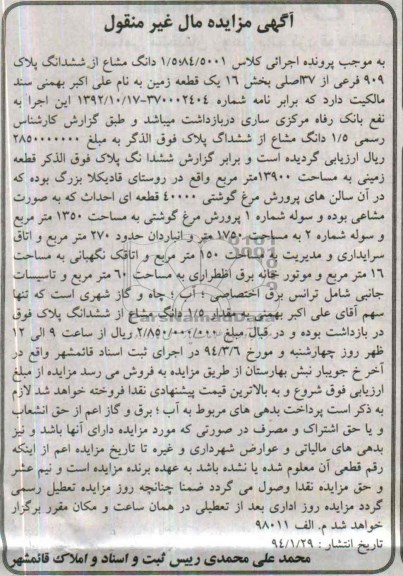 آگهی مزایده مال غیر منقول
به موجب پرونده اجرائی کلاس ۱/۵:۸۴/۵۰۰۱ دانگ مشاع از ششدانگ پلاک
۹۰۹ فرعی از ۳۷اصلی بخش ۱۶ یک قطعه زمین به نام علی اکبر بهمنی سند
مالکیت دارد که برابر نامه شماره ۳۷۰۰۰۲۴۰۴-۱۳۹۲/۱۰/۱۷ این اجرا به
نفع بانک رفاه مرکزی ساری دربازداشت میباشد و طبق گزارش کارشناس
رسمی ۱/۵ دانگ مشاع از ششداگ پلاک فوق الذگر به مبلغ ۲۸۵۰۰۰۰۰۰۰
ریال ارزیابی گردیده است و برابر گزارش ششدا نگ پلاک فوق الذکر قطعه
زمینی به مساحت ۱۳۹۰۰متر مربع واقع در روستای قادیکلا بزرگ بوده که
در آن سالن های پرورش مرغ گوشتی ۴۰۰۰۰ قطعه ای احداث که به صورت
مشاعی بوده و سوله شماره ۱ پرورش مرغ گوشتی به مساحت ۱۳۵۰ متر مربع
و سوله شماره ۲ به مساحت ۱۷۵۰ متر و انباردان حدود ۲۷۰ متر مربع و اتاق
سرایداری و مدیریت به مساحت ۱۵۰ متر مربع و اتاقک نگهبانی به مساحت
۱۶ متر مربع و موتور خانه برق اظطراری به مساحت ۶۰ متر مربع و تاسیسات
جانبی شامل ترانس برق اختصاصی ؛ آب ؛ چاه و گاز شهری است که تنها
سهم آقای علی اکبر بهمنی به مقدار ۱/۵ دانگ مشاع از ششدانگ پلاک فوق
در بازداشت بوده و در قبال مبلغ ۲/۸۵۰/۰۰۰/۰۰۰ ریال از ساعت ۹ الی ۱۲
ظهر روز چهارشنبه و مورخ ۹۴/۳/۶ در اجرای ثبت اسناد قائمشهر واقع در
آخر خ جویبار نبش بهارستان از طریق مزایده به فروش می رسد مزایده از مبلغ
ارزیابی فوق شروع و به بالاترین قیمت پیشنهادی نقدا فروخته خواهد شد لازم
به ذکر است پرداخت بدهی های مربوط به آب ؛ برق و گاز اعم از حق انشعاب
و یا حق اشتراک و مصرف در صورتی که مورد مزایده دارای آنها باشد و نیز
بدهی های مالیاتی و عوارض شهرداری و غیره تا تاریخ مزایده اعم از اینکه
رقم قطعی آن معلوم شده یا نشده باشد به عهده برنده مزایده است و نیم عشر
و حق مزایده نقدا وصول می گردد ضمنا چنانچه روز مزایده تعطیل رسمی
گردد مزایده روز اداری بعد از تعطیلی در همان ساعت و مکان مقرر برگزار
خواهد شد م. الف ۹۸۰۱۱
تاریخ انتشار : ۹۴/۱/۲۹
محمد علی محمدی رییس ثبت و اسناد و املاک قائمشهر